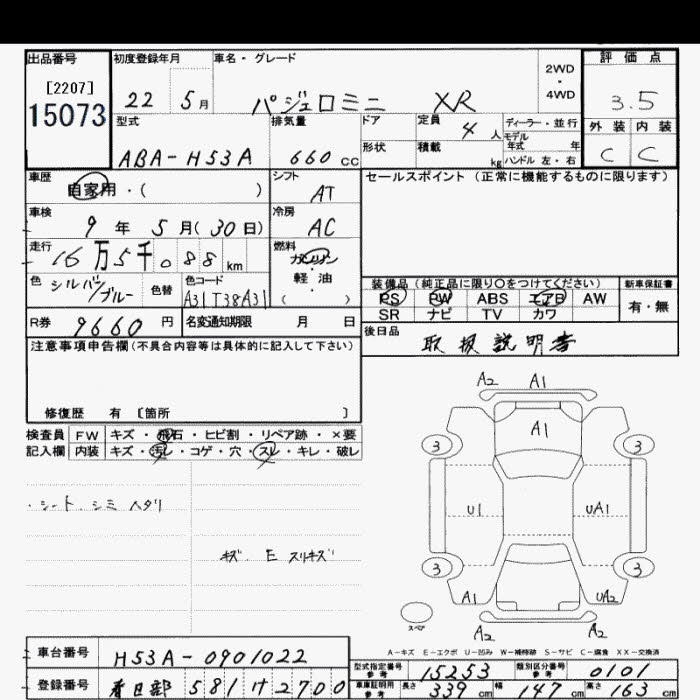 出品番号 初度登録年月 車名・グレード 評価点
[2207] 2WD
15073 22 5月 パジェロミニ XR ・ 3.5
4WD
型式 排気量 ドア 定員 4人 ディーラー・並行 外装 内装
モデル
年式 年
ABA-H53A 660cc 形状 積載 kg ハンドル 左・右 C C
車歴 シフト セールスポイント (正常に機能するものに限ります)
自家用・( ) AT
車検 冷房
9年 5月(30日) AC
走行 燃料
16万5千088km ガソリン
・
色 シルバー/ブルー 色替 色コード 軽油 装備品 (純正品に限り〇をつけてください) 新車保証書
A31T38A31 ( ) PS PW ABS エアB AW 有・無
SR ナビ TV カワ
R券 9660円 名変通知期限 月 日 後日品
取扱説明書
注意事項申告欄(不具合内容等は具体的に記入して下さい)
修復歴 有 [箇所 ]
検査員 FW キズ・飛石・ヒビ割・リペア跡・×要
記入欄 内装 キズ・汚レ・コゲ・穴・スレ・キレ・破レ
・シート シミ ヘタリ
キズ E スリキズ
A2 A1
A1
3 3
U1 UA1
3 3
A1 UA2
スペア A2 A2
A-キズ E-エクボ U-凹み W-補修跡 S-サビ C-腐食 XX-交換済
車台番号 H53A-0901022 型式指定番号 参考 15253 類別区分番号 参考 0101
登録番号 春日部 581 け 2700 車庫証明用 参考 長さ 339cm 幅 147cm 高さ 163cm